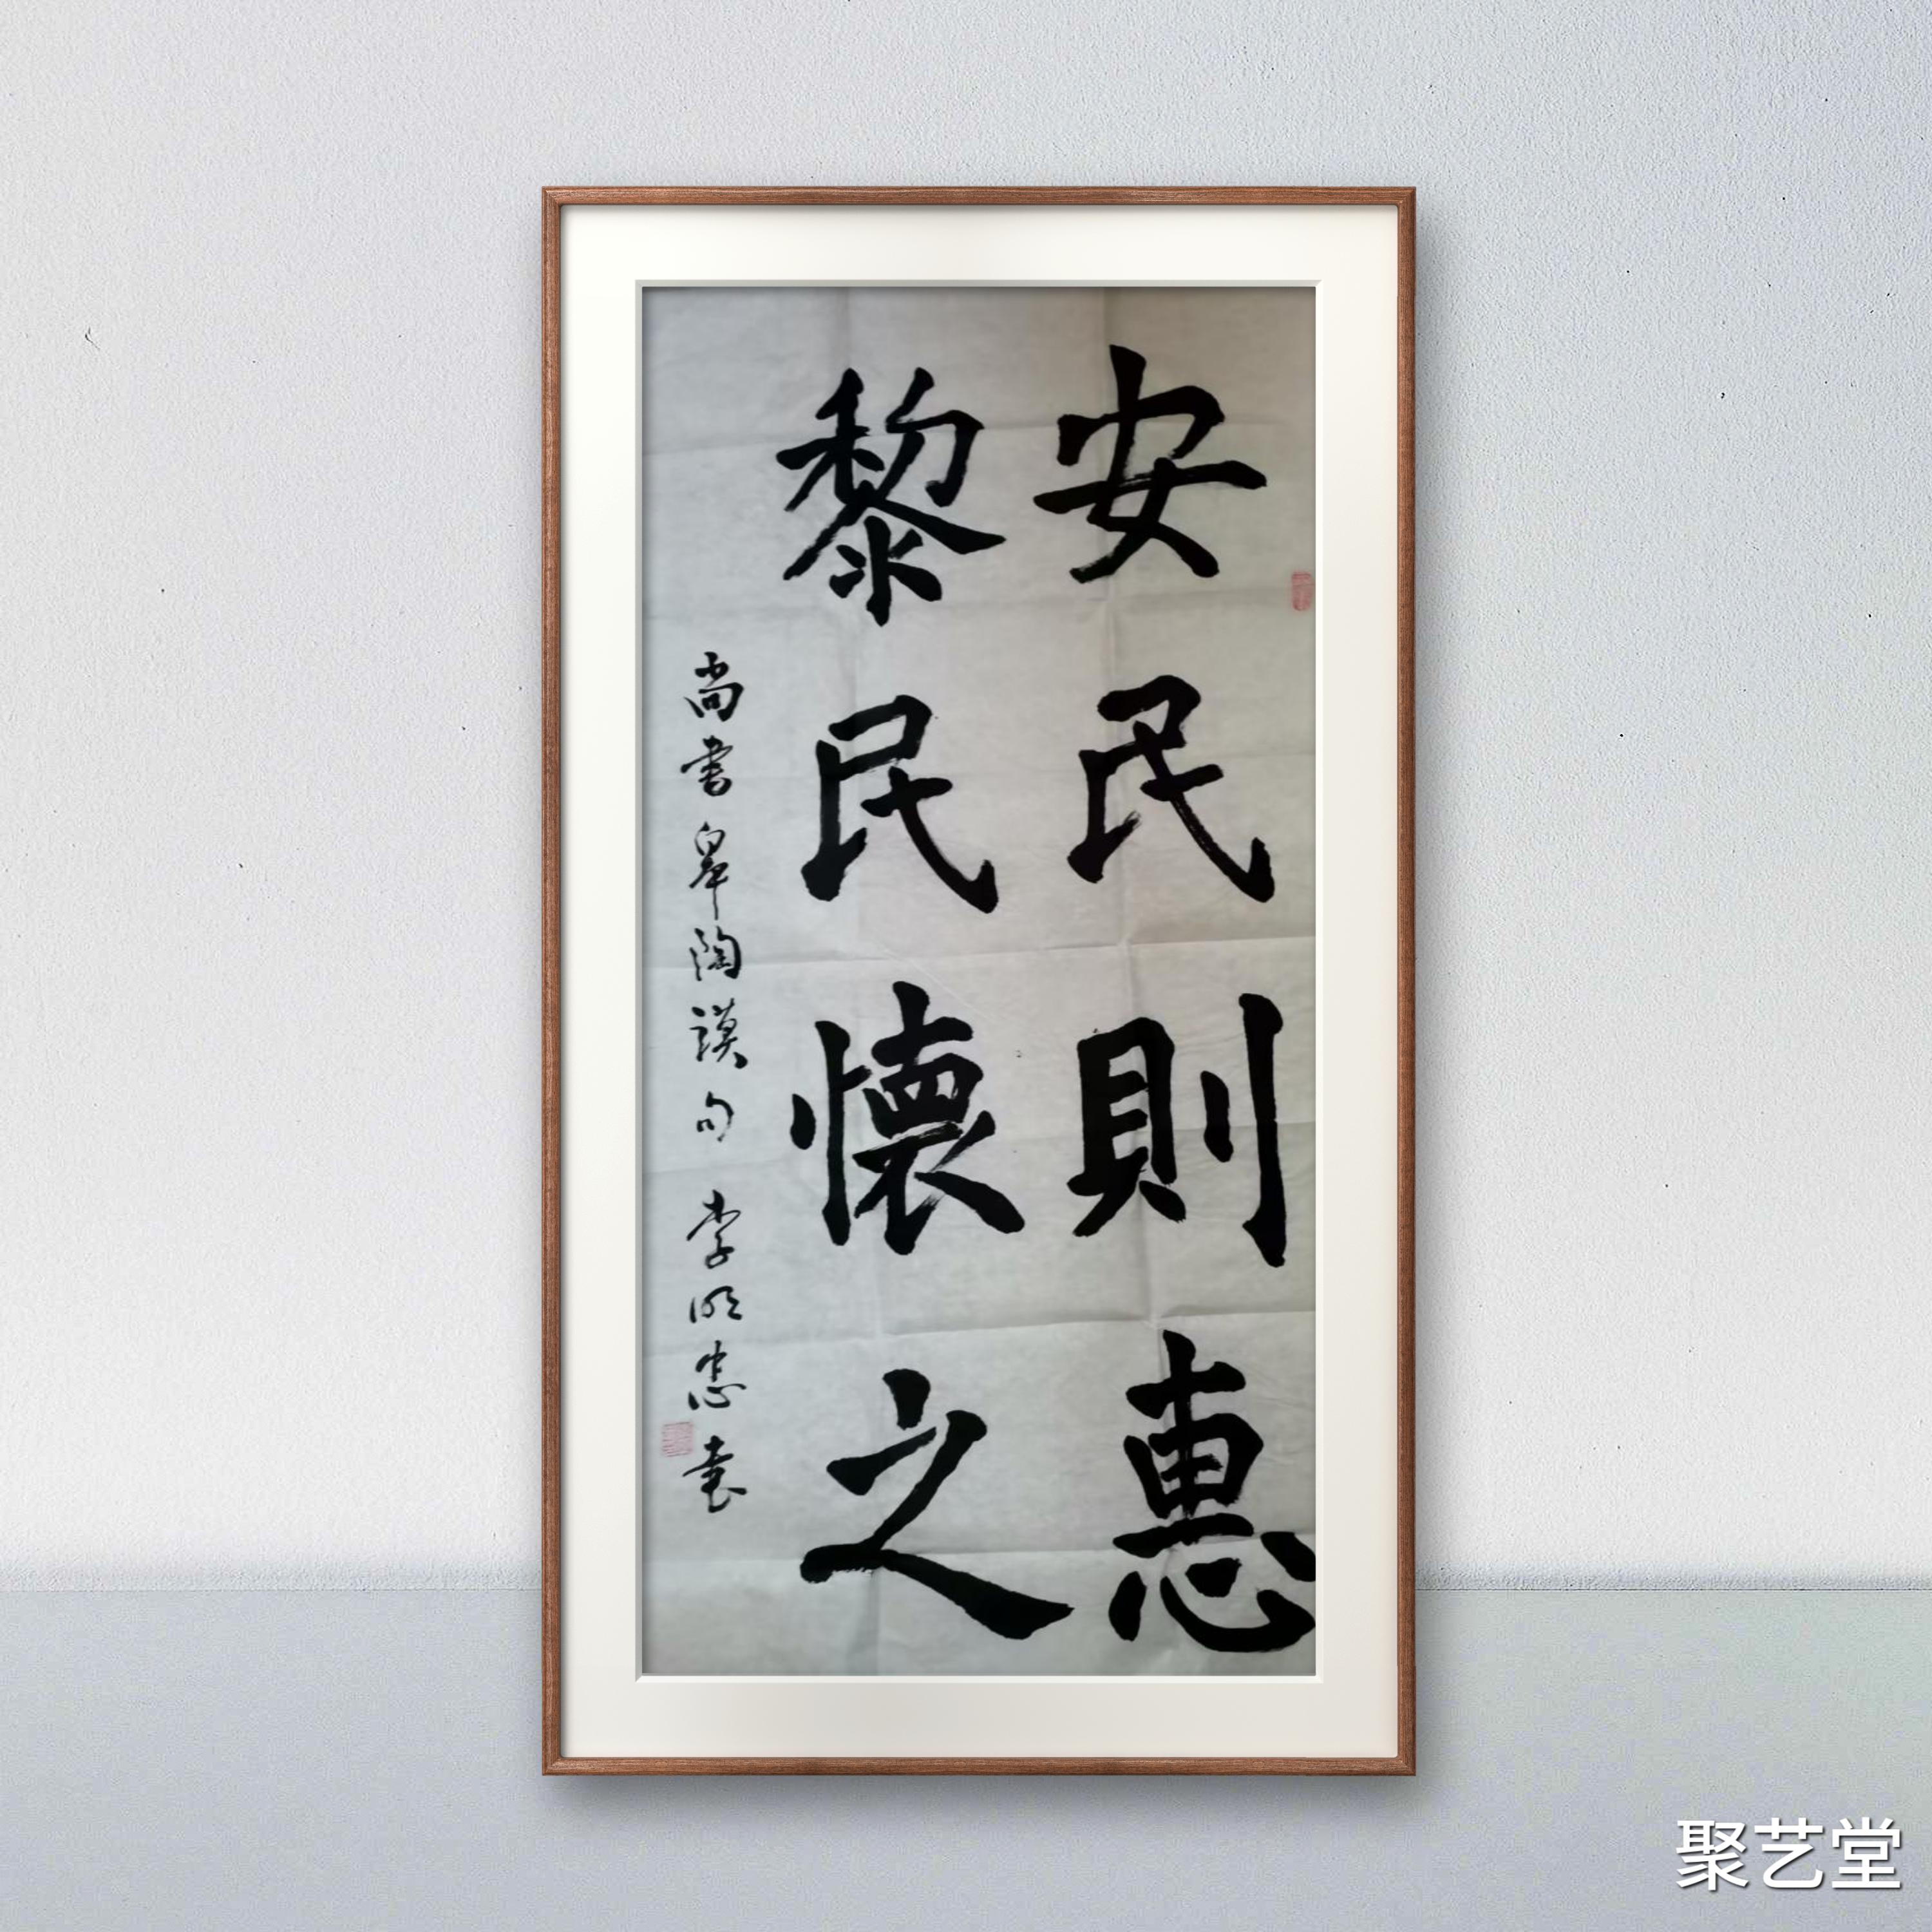 安民則惠
黎民懷之
尚書皋陶謨句 李明忠書
聚艺堂